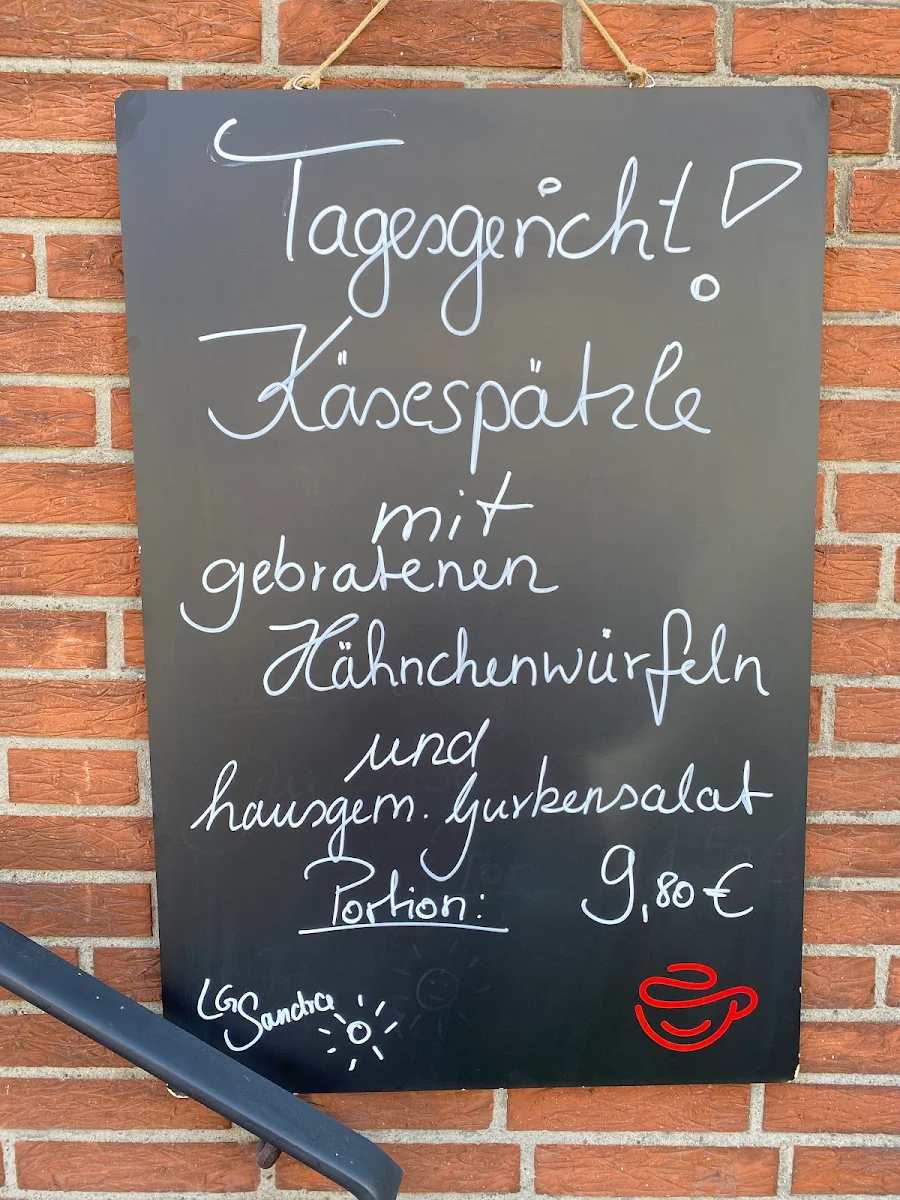 Tagesgericht!
Käsespätzle
mit
gebratenen
Hähnchenwürfeln
und
hausgem. Gurkensalat
Portion: 9,80 €
LG Sandra